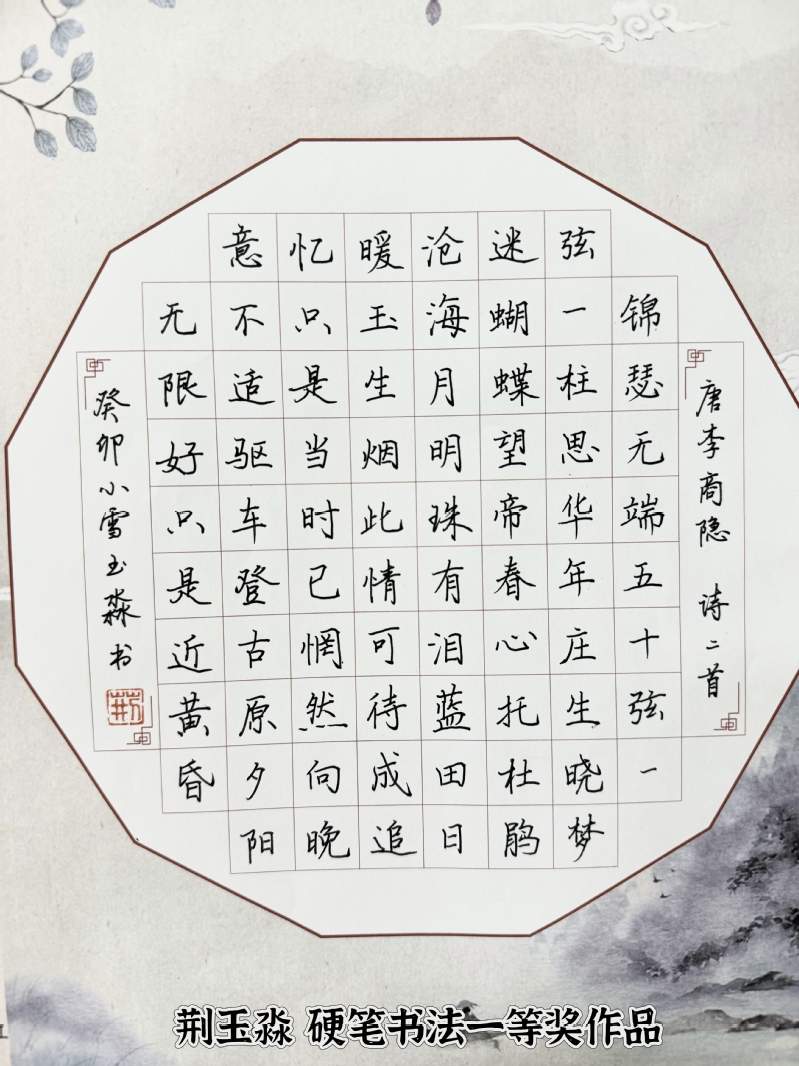 唐李商隐 诗二首
锦瑟无端五十弦一
弦一柱思华年庄生晓梦
迷蝴蝶望帝春心托杜鹃
沧海月明珠有泪蓝田日
暖玉生烟此情可待成追
忆只是当时已惘然向晚
意不适驱车登古原夕阳
无限好只是近黄昏
癸卯小雪玉淼书
荆
荆玉淼 硬笔书法一等奖作品